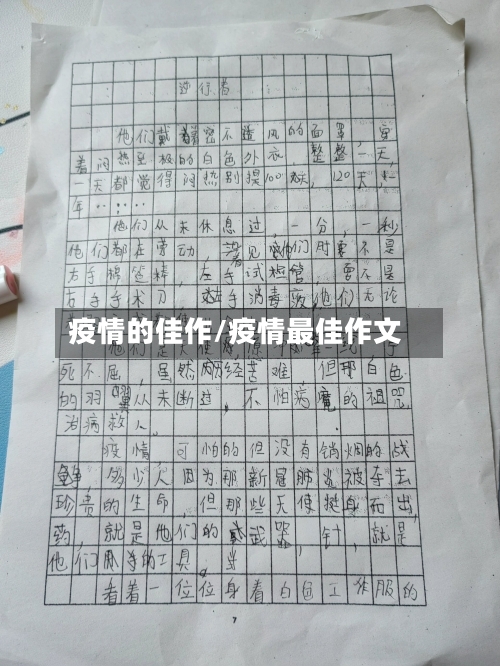 逆行者
他们戴着密不透风的面罩，穿
着闷热至极的白色外衣，整整一天，
一天都觉得闷热别提100天，120天，一
年……
他们从未休息过，一分，一秒
他们都在劳动，
右手棉签精，左手试检管，要不是
右手手术刀，左手消毒液他们无论
疫情的佳作/疫情最佳作文
死不屈，虽然历经苦难，但那白色
的羽翼从未断过，不怕病魔的祖咒，
治病救人。
疫情，可怕的但没有销烟的战
争，多少人因为那新冠肺炎被夺去
珍贵的生命，但那些天使挺身而出，
药，就是他们的武器，针，就是
他们的工具，
看着一位位身着白色工作服的
7